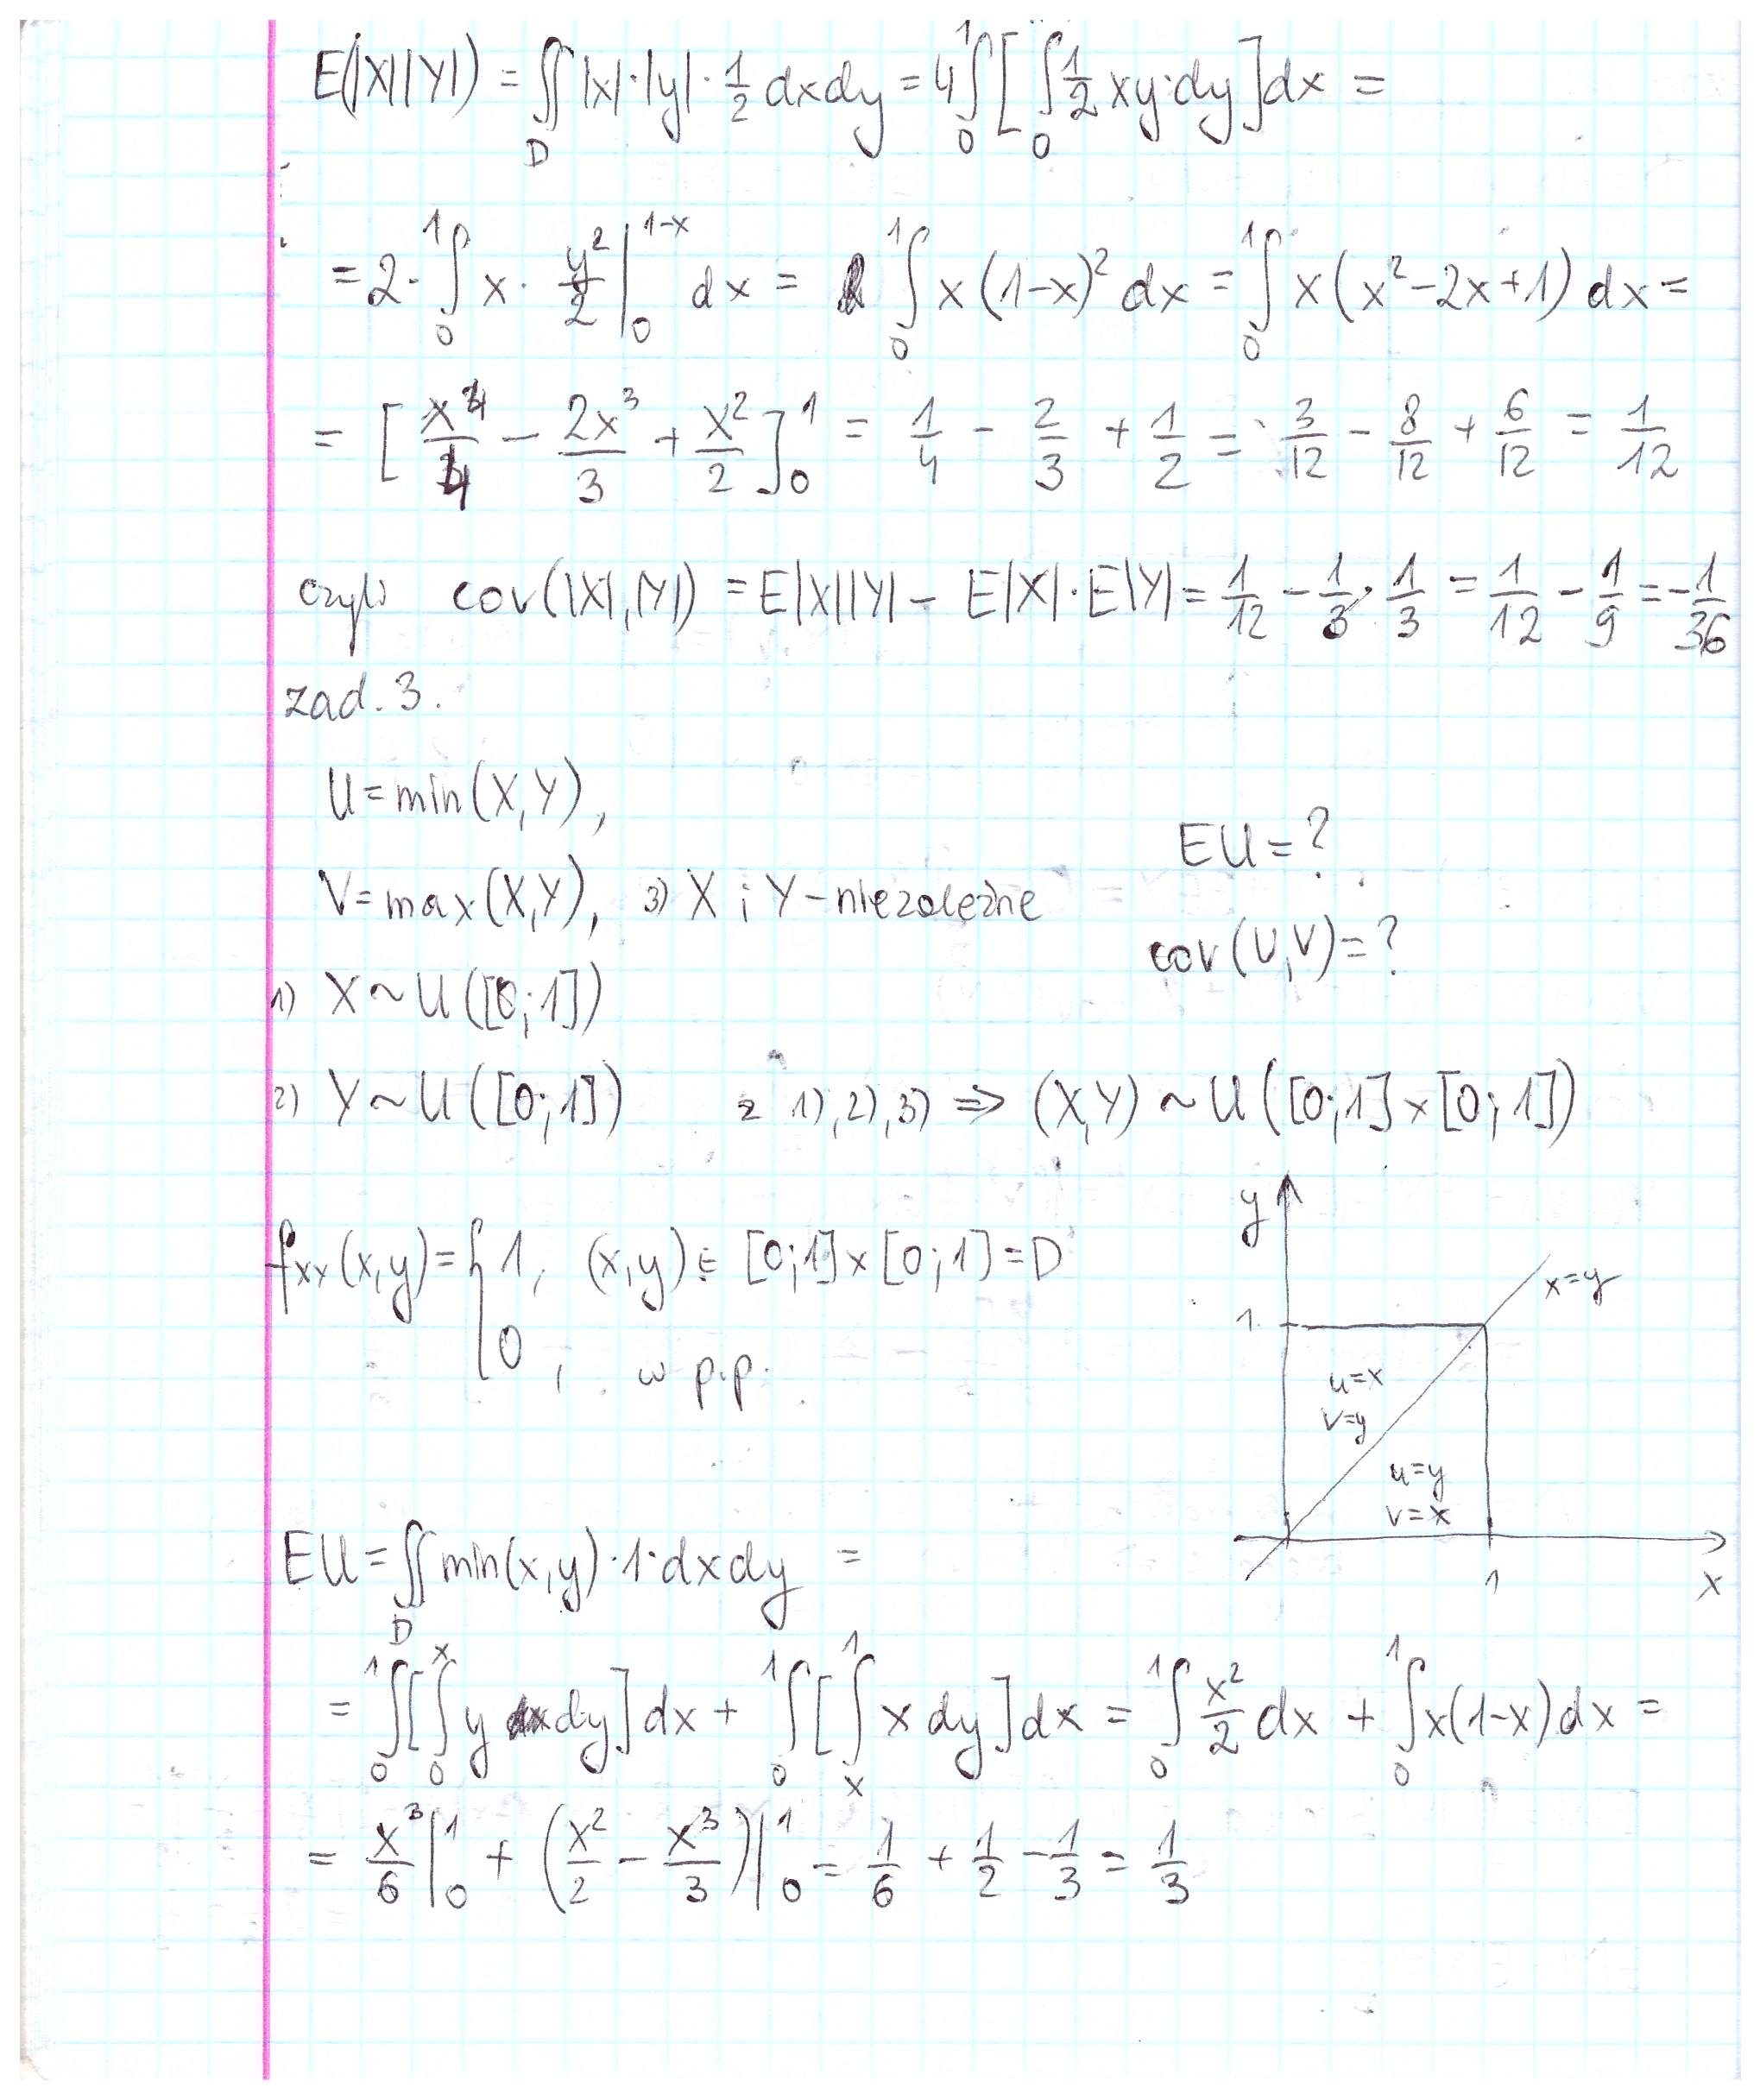 E(|X||Y|) = ∬_D |x|·|y|·1/2 dxdy = 4 ∫_0^1 [ ∫_0 1/2 xy·dy ] dx =
= 2· ∫_0^1 x· y²/2 |_0^{1-x} dx = ∫_0^1 x(1-x)² dx = ∫_0^1 x(x²-2x+1) dx =
= [ x⁴/4 - 2x³/3 + x²/2 ]_0^1 = 1/4 - 2/3 + 1/2 = 3/12 - 8/12 + 6/12 = 1/12
czyli cov(|X|,|Y|) = E|X||Y| - E|X|·E|Y| = 1/12 - 1/3·1/3 = 1/12 - 1/9 = -1/36
zad. 3.
U = min(X,Y),
EU = ?
V = max(X,Y), 3) X i Y - niezależne
cov(U,V) = ?
1) X ~ U([0;1])
2) Y ~ U([0;1]) z 1),2),3) => (X,Y) ~ U([0;1]×[0;1])
f_{XY}(x,y) = { 1, (x,y) ∈ [0;1]×[0;1] = D
0, w p.p.
y
x=y
1
u=x
v=y
u=y
v=x
1
x
EU = ∬_D min(x,y)·1·dxdy =
= ∫_0^1 [ ∫_0^x y dy ] dx + ∫_0^1 [ ∫_x^1 x dy ] dx = ∫_0^1 x²/2 dx + ∫_0^1 x(1-x) dx =
= x³/6 |_0^1 + (x²/2 - x³/3) |_0^1 = 1/6 + 1/2 - 1/3 = 1/3